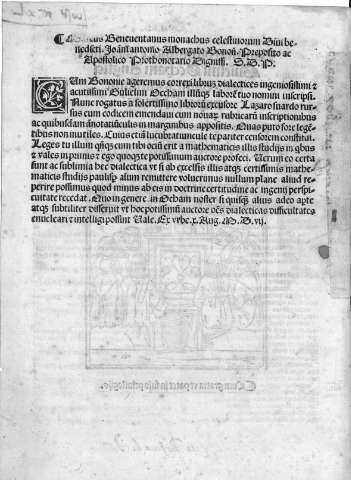 Beneventanus monachus celestinorum Divi be-
nedicti. Joāni antonio Albergato Bonoñ. Preposito ac
Apostolico Prothonotario Dignissi. S. D. P.
CUm Bononie ageremus correxi libruȝ dialectices ingeniosissimi ⁊
acutissimi Gulielmi Ocham illiusqȝ laborē tuo nomini inscripsi.
Nunc rogatus a solertissimo librorū excusore Lazaro suardo rur-
sus eum codicem emendaui cum nouaȝ rubricarū inscriptionibus
ac quibusdam ānotatiūculis in marginibus appositis. Quas puto fore legē-
tibus non inutiles. Euius te pariter censorem constitui.
Leges tu illum qn̄qȝ cum tibi ociū erit a mathematicis illis studijs in qbus
⁊ vales inprimis ⁊ ego quoqȝ te potissimum auctore profeci. Verum eo certa
sunt ac sublimia hec dialectica vt si ab excelsis illis atqȝ certissimis mathe-
maticis studijs paulisp asum remittere voluerimus nullum plane aliud re-
perire possimus quod minus ab eis in doctrine certitudine ac ingenij perspi-
cuitate recedat. Quo in genere. in Ocham noster si quisqȝ alius adeo apte
atqȝ subtiliter disseruit vt hoc potissimū auctore oēs dialecticas difficultates
enucleari ⁊ intelligi possint Uale. Ex vrbe. x. Aug. M. D. vij.